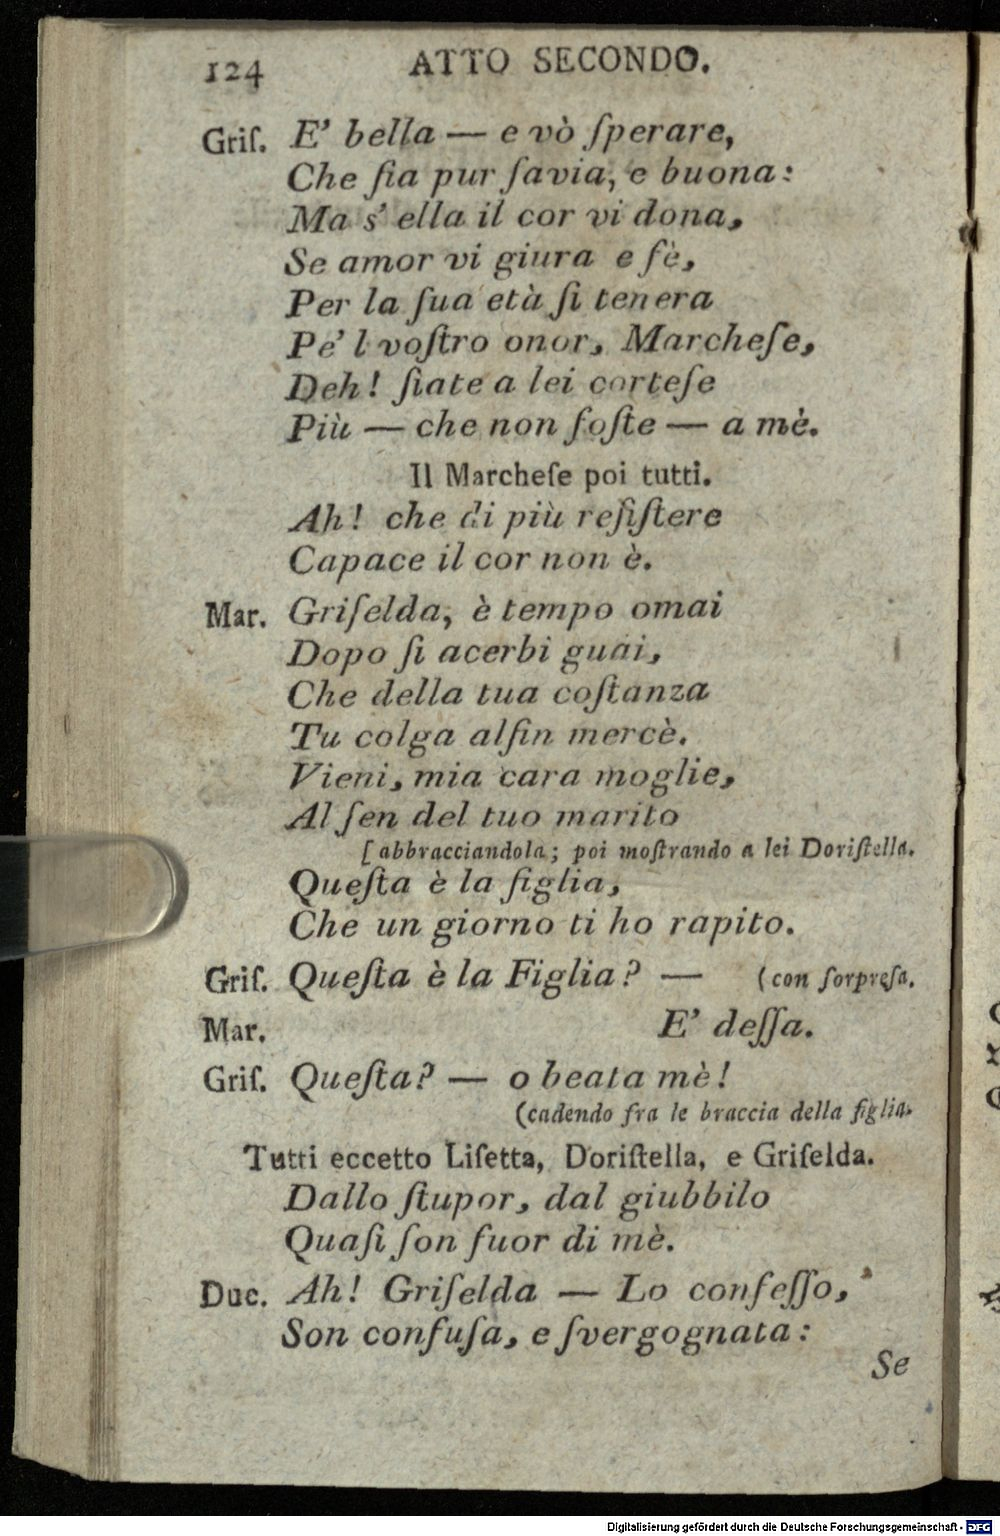 124 ATTO SECONDO.
Griſ. E' bella — e vò ſperare,
Che ſia pur ſavia, e buona:
Ma s' ella il cor vi dona,
Se amor vi giura e fè,
Per la ſua età ſi tenera
Pe' l voſtro onor, Marcheſe,
Deh! ſiate a lei corteſe
Più — che non foſte — a mè.
Il Marcheſe poi tutti.
Ah! che di più reſiſtere
Capace il cor non è.
Mar. Griſelda, è tempo omai
Dopo ſi acerbi guai,
Che della tua coſtanza
Tu colga alfin mercè.
Vieni, mia cara moglie,
Al ſen del tuo marito
[abbracciandola; poi moſtrando a lei Doriſtella.
Queſta è la figlia,
Che un giorno ti ho rapito.
Griſ. Queſta è la Figlia? — (con ſorpreſa.
Mar. E' deſſa.
Griſ. Queſta? — o beata mè!
(cadendo fra le braccia della figlia.
Tutti eccetto Liſetta, Doriſtella, e Griſelda.
Dallo ſtupor, dal giubbilo
Quaſi ſon fuor di mè.
Duc. Ah! Griſelda — Lo confeſſo,
Son confuſa, e ſvergognata:
Se
Digitalisierung gefördert durch die Deutsche Forschungsgemeinschaft - DFG